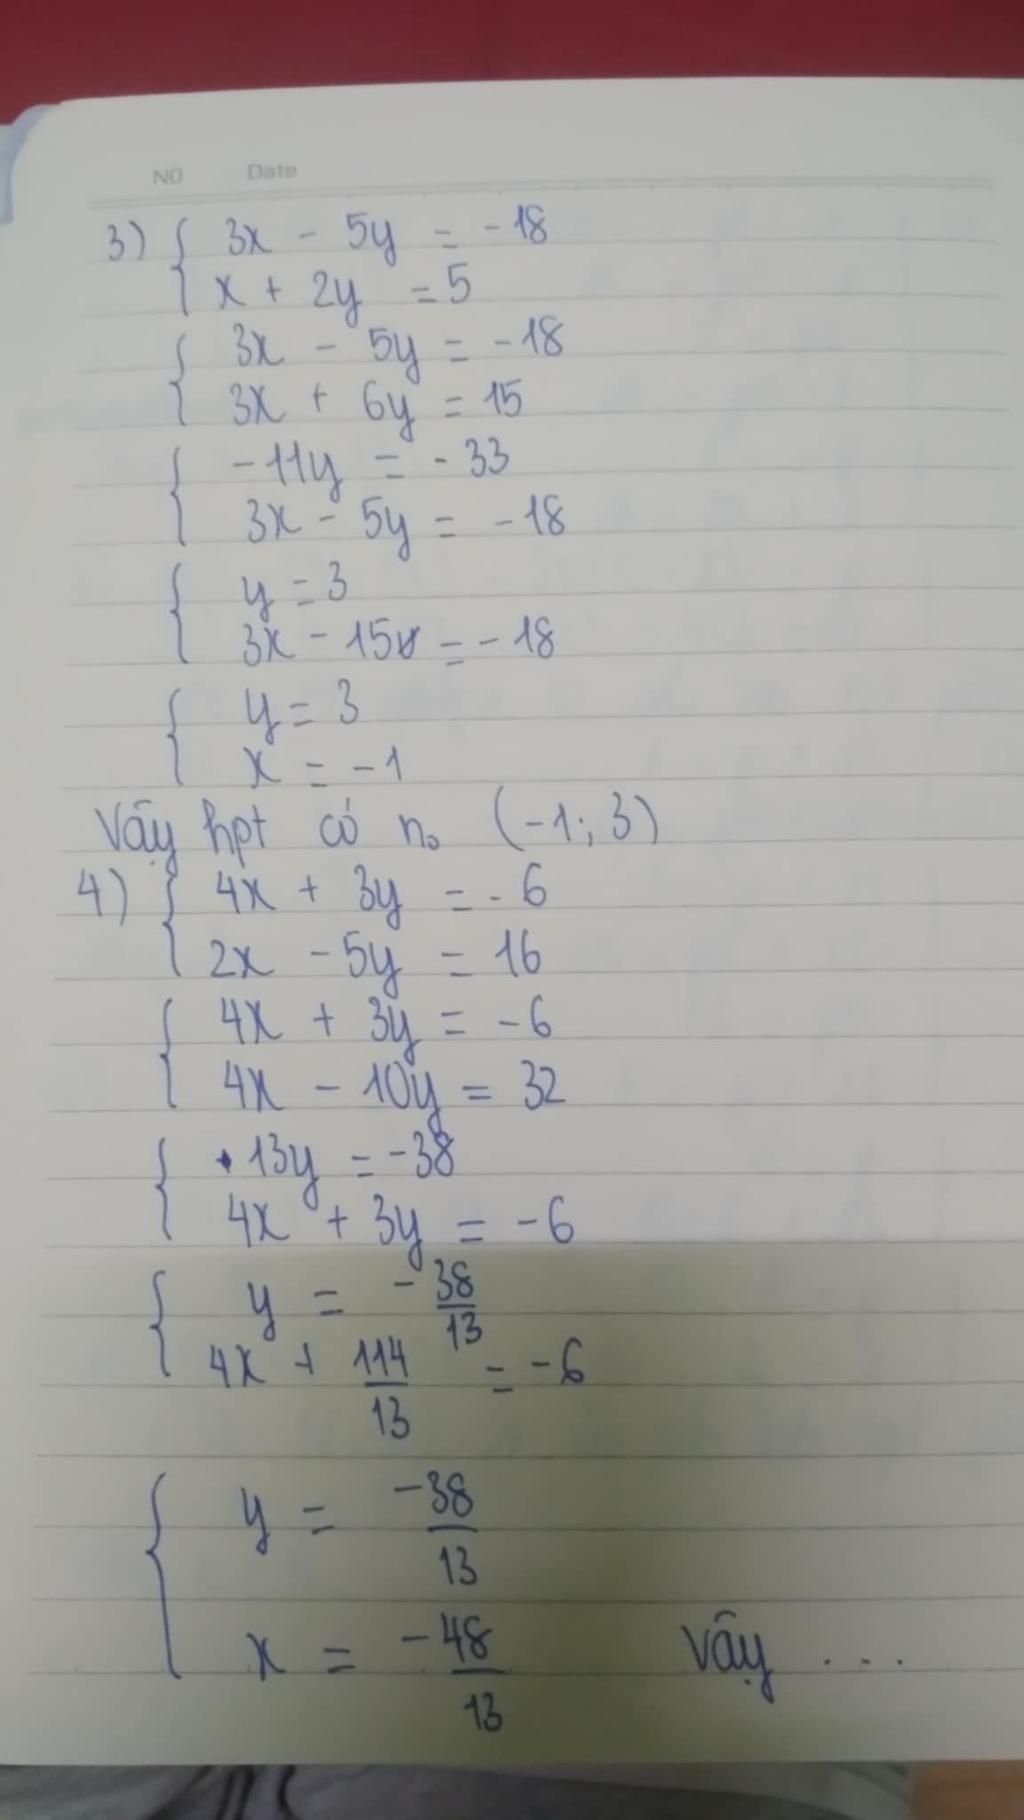 NO Date
3) { 3x - 5y = -18
x + 2y = 5
{ 3x - 5y = -18
3x + 6y = 15
{ -11y = -33
3x - 5y = -18
{ y = 3
3x - 15 = -18
{ y = 3
x = -1
Vậy hpt có no (-1; 3)
4) { 4x + 3y = -6
2x - 5y = 16
{ 4x + 3y = -6
4x - 10y = 32
{ 13y = -38
4x + 3y = -6
{ y = -38/13
4x + 114/13 = -6
{ y = -38/13
x = -48/13 Vậy ...